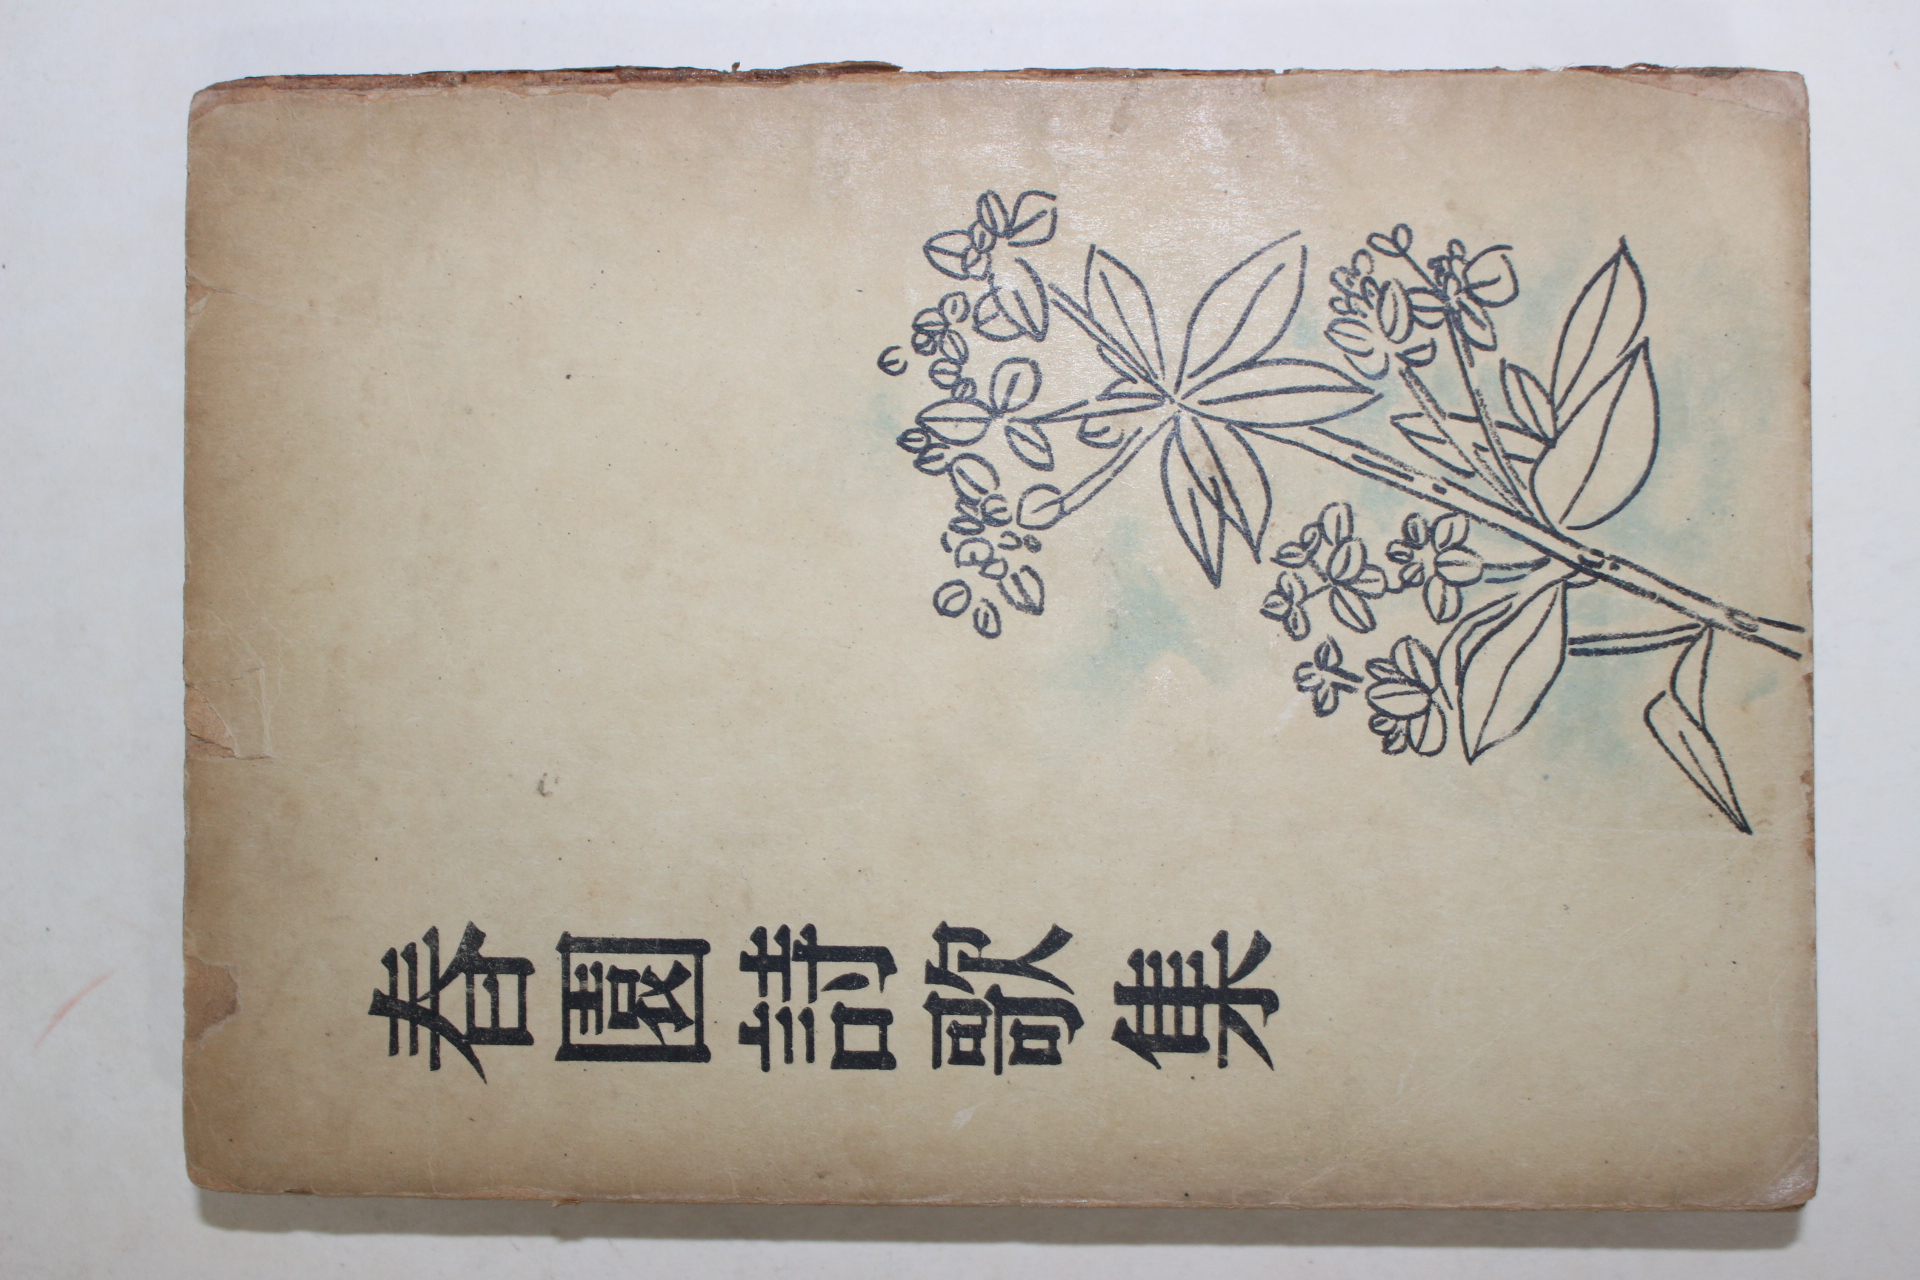 春園詩歌集